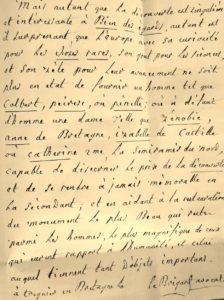 Mais autant que la découverte est singulière
et intéressante à bien des égards, autant est
il surprenant, que l'europe avec sa curiosité
pour les choses rares, son gout pour les sciences,
et son zèle pour leur avancement ne soit
plus en état de fournir un homme tel que
Colbert, peiresc, ou ou à défaut
d'homme une dame telle que zénobie,
anne de Bretagne, izabelle de Castille
où catherine 2me la semiramis du nord,
capable de discerner le prix de la découverte
et de se rendre à jamais mémorable en
la secondant; et en aidant à la restauration
du monument le plus Beau qui soit
parmi les hommes, le plus magnifique de ceux
qui aient rapport à l'humanité, et celui
auquel tiennent tant d'objets importans.
à treguier en Bretagne le Brigant avocat.